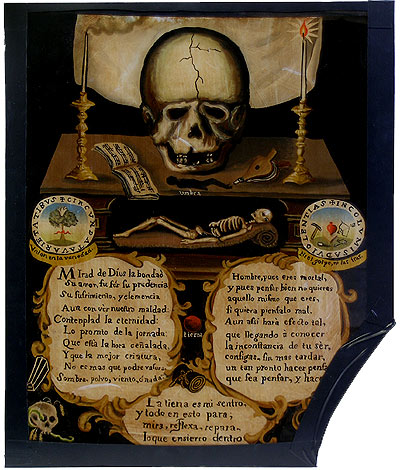 umbra
VARIETATIBUS
CIRCUN
Mirad de Dios la bondad
Su amor,
Su sufrimiento, y clemencia
Aun con ver nuestra maldad.
Contemplad la eternidad
Lo promto de la jornada
Que está la hora señalada,
Y que la mejor criatura,
No es mas que podre
Sombra, polvo, viento,
Hombre, pues eres mortal,
y pues pensar bien no quieres
aquello mismo que eres,
si quiera piensalo mal.
Aun asi hará efecto tal,
que llegando á conocer
la inconstancia de tu sér,
consigas, sin mas tardar,
un tan pronto hacer
que sea pensar, y hace
tierra
La tierra es mi sentro,
y todo en esto para;
mira, reflexa, repara
lo que ensierro dentro